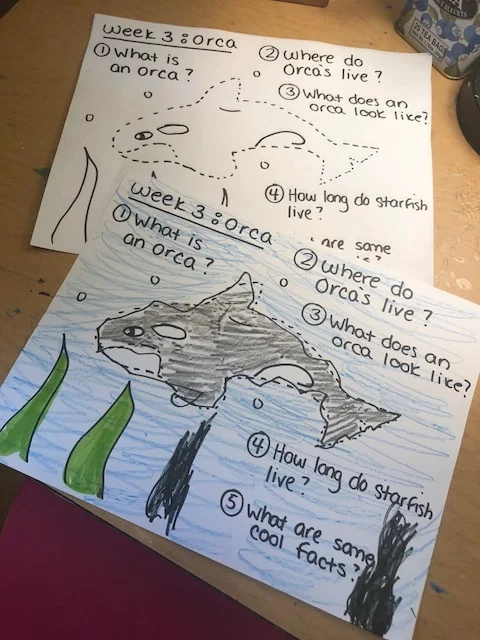 Week 3: Orca
① What is
an orca?
② Where do
Orca's live?
③ What does an
orca look like?
④ How long do starfish
live?
are same
Week 3: Orca
① What is
an orca?
② Where do
Orca's live?
③ What does an
orca look like?
④ How long do starfish
live?
⑤ What are same
cool facts?
20 TEA BAGS